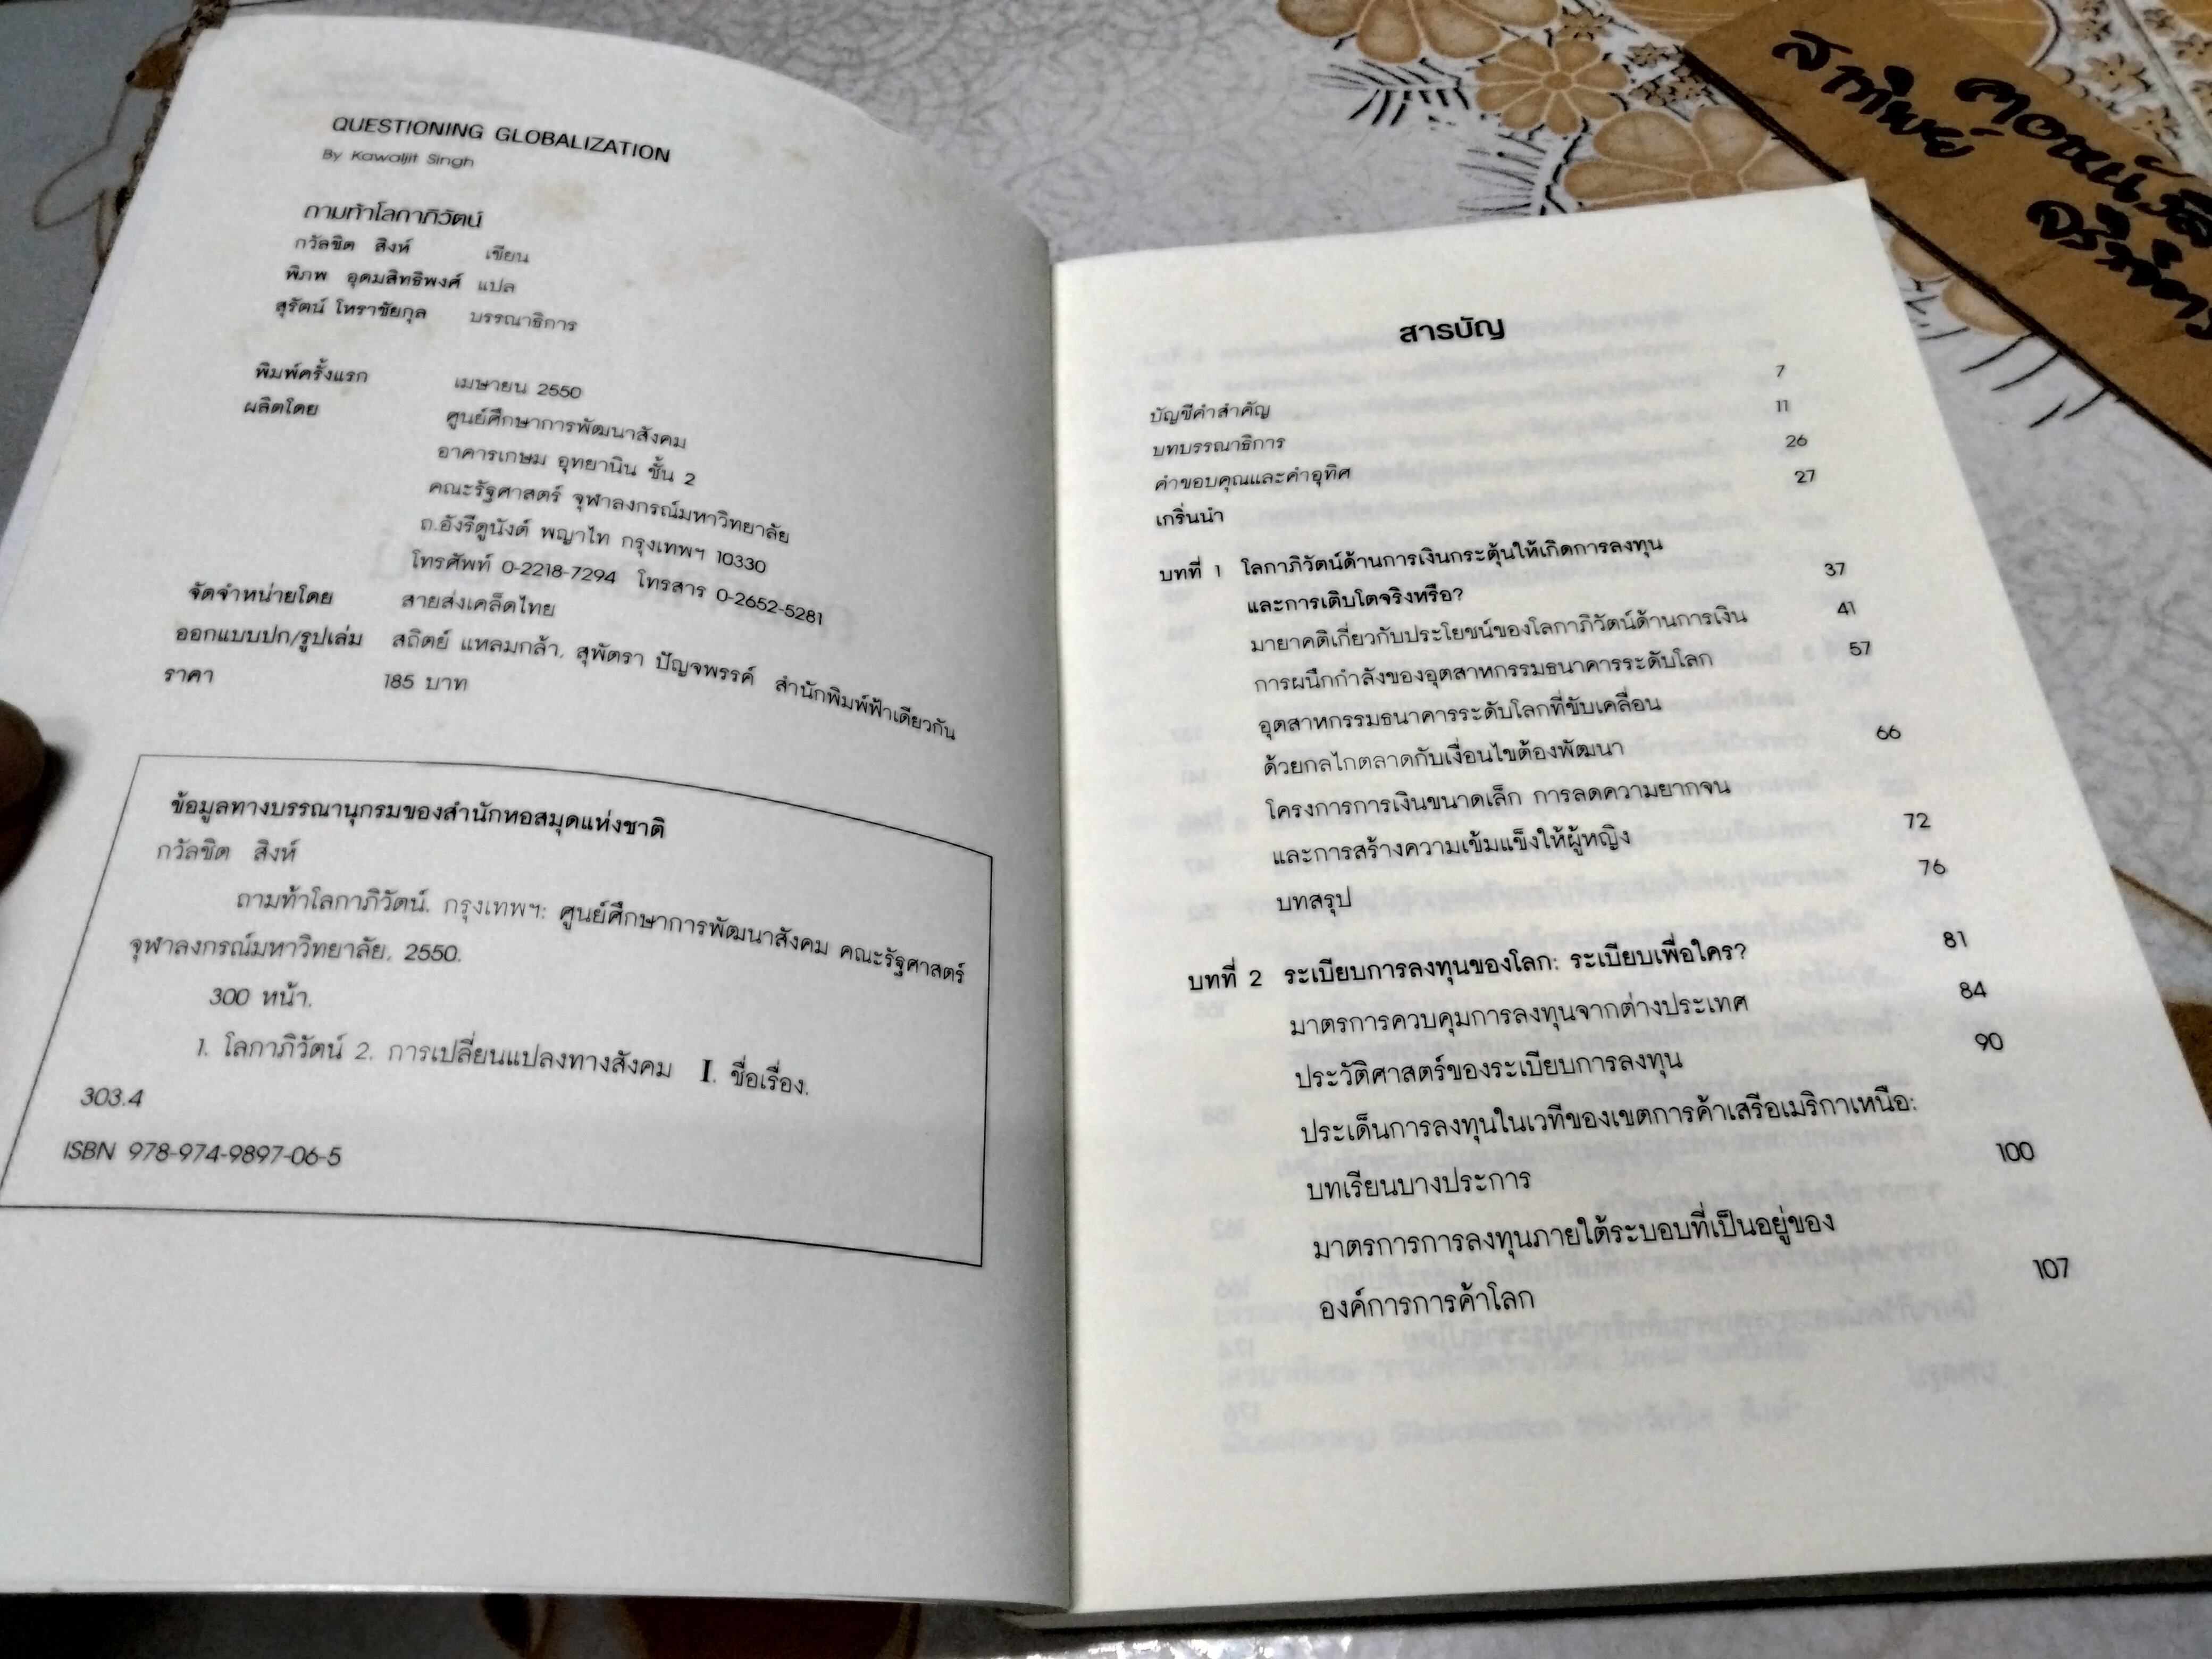 QUESTIONING GLOBALIZATION
By Kawaljit Singh
ถามท้าโลกาภิวัตน์
กวัลชิต สิงห์ เขียน
พิภพ อุดมสิทธิพงศ์ แปล
สุรัตน์ โหราชัยกุล บรรณาธิการ
พิมพ์ครั้งแรก เมษายน 2550
ผลิตโดย ศูนย์ศึกษาการพัฒนาสังคม
อาคารเกษม อุทยานิน ชั้น 2
คณะรัฐศาสตร์ จุฬาลงกรณ์มหาวิทยาลัย
ถ.อังรีดูนังต์ พญาไท กรุงเทพฯ 10330
โทรศัพท์ 0-2218-7294 โทรสาร 0-2652-5281
จัดจำหน่ายโดย สายส่งเคล็ดไทย
ออกแบบปก/รูปเล่ม สถิตย์ แหลมกล้า, สุพัตรา ปัญจพรรค์ สำนักพิมพ์ฟ้าเดียวกัน
ราคา 185 บาท
ข้อมูลทางบรรณานุกรมของสำนักหอสมุดแห่งชาติ
กวัลชิต สิงห์
ถามท้าโลกาภิวัตน์. กรุงเทพฯ: ศูนย์ศึกษาการพัฒนาสังคม คณะรัฐศาสตร์
จุฬาลงกรณ์มหาวิทยาลัย, 2550.
300 หน้า.
1. โลกาภิวัตน์ 2. การเปลี่ยนแปลงทางสังคม I. ชื่อเรื่อง.
303.4
ISBN 978-974-9897-06-5
สารบัญ
บัญชีคำสำคัญ 7
บทบรรณาธิการ 11
คำขอบคุณและคำอุทิศ 26
เกริ่นนำ 27
บทที่ 1 โลกาภิวัตน์ด้านการเงินกระตุ้นให้เกิดการลงทุน
และการเติบโตจริงหรือ? 37
มายาคติเกี่ยวกับประโยชน์ของโลกาภิวัตน์ด้านการเงิน 41
การผนึกกำลังของอุตสาหกรรมธนาคารระดับโลก 57
อุตสาหกรรมธนาคารระดับโลกที่ขับเคลื่อน
ด้วยกลไกตลาดกับเงื่อนไขต้องพัฒนา 66
โครงการการเงินขนาดเล็ก การลดความยากจน
และการสร้างความเข้มแข็งให้ผู้หญิง 72
บทสรุป 76
บทที่ 2 ระเบียบการลงทุนของโลก: ระเบียบเพื่อใคร? 81
มาตรการควบคุมการลงทุนจากต่างประเทศ 84
ประวัติศาสตร์ของระเบียบการลงทุน 90
ประเด็นการลงทุนในเวทีของเขตการค้าเสรีอเมริกาเหนือ:
บทเรียนบางประการ 100
มาตรการการลงทุนภายใต้ระบอบที่เป็นอยู่ของ
องค์การการค้าโลก 107